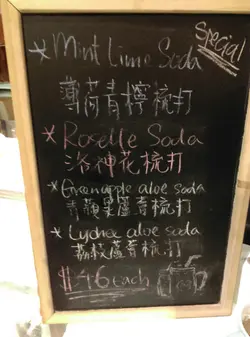 Special
* Mint Lime Soda
薄荷青檸梳打
* Roselle Soda
洛神花梳打
* Greenapple aloe soda
青蘋果蘆薈梳打
* Lychee aloe soda
荔枝蘆薈梳打
$46 each